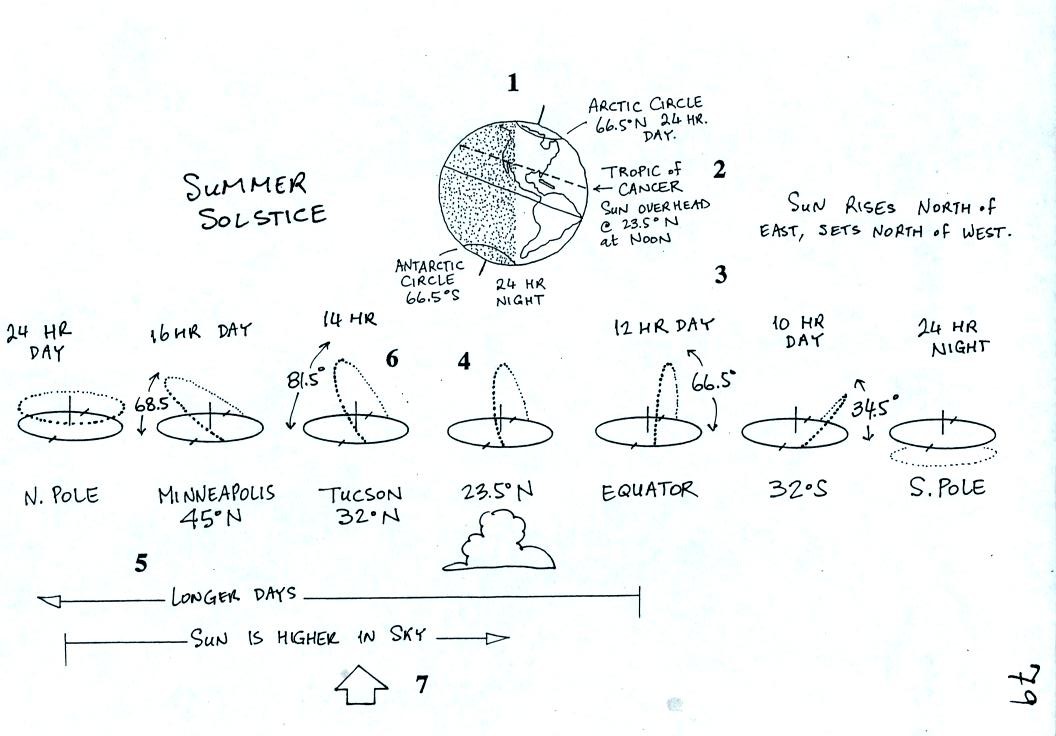 1
ARCTIC CIRCLE
66.5°N 24 HR.
DAY.
SUMMER
SOLSTICE
TROPIC of
CANCER
SUN OVERHEAD
@ 23.5°N
at NOON
2
SUN RISES NORTH of
EAST, SETS NORTH of WEST.
ANTARCTIC
CIRCLE
66.5°S
24 HR
NIGHT
3
24 HR
DAY
16 HR DAY
68.5°
14 HR
81.5°
6
4
12 HR DAY
66.5°
10 HR
DAY
34.5°
24 HR
NIGHT
N. POLE
MINNEAPOLIS
45°N
TUCSON
32°N
23.5°N
EQUATOR
32°S
S. POLE
5
LONGER DAYS
SUN IS HIGHER IN SKY
7
79